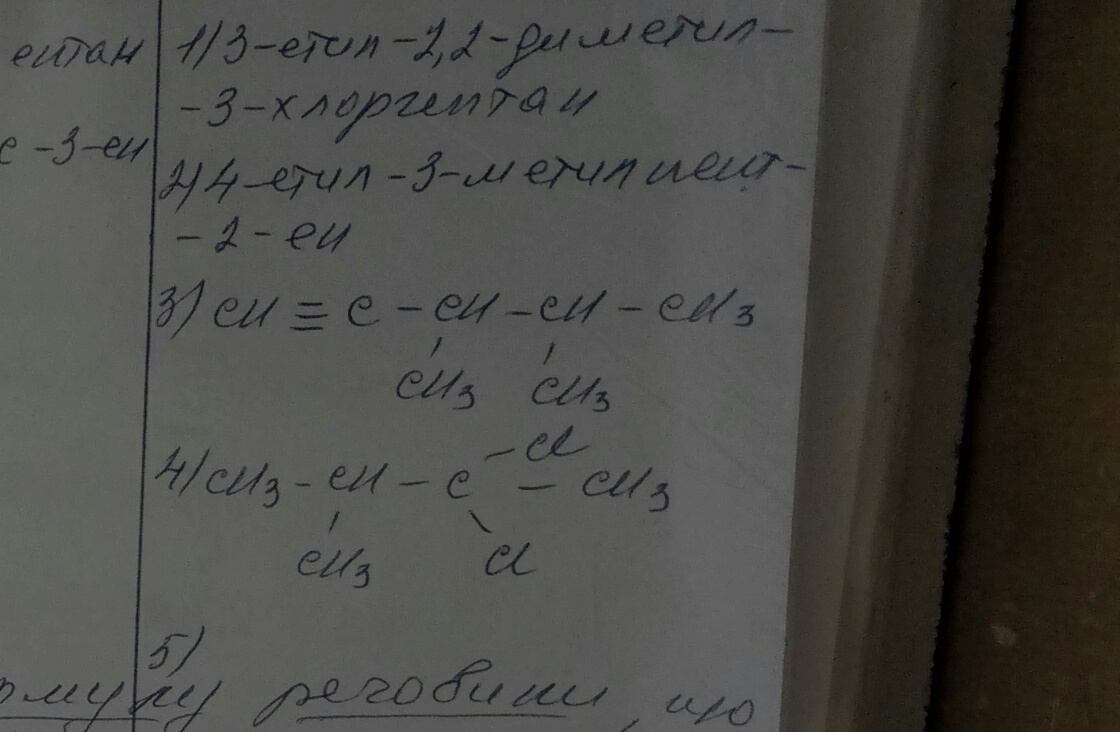 ептан
1) 3-етил-2,2-диметил-
-3-хлоргептан
с-3-ен
2) 4-етил-3-метилпент-
-2-ен
3) CH ≡ C - CH - CH - CH3
CH3 CH3
Cl
4) CH3 - CH - C - CH3
CH3 Cl
5)
рмулу речовини, що